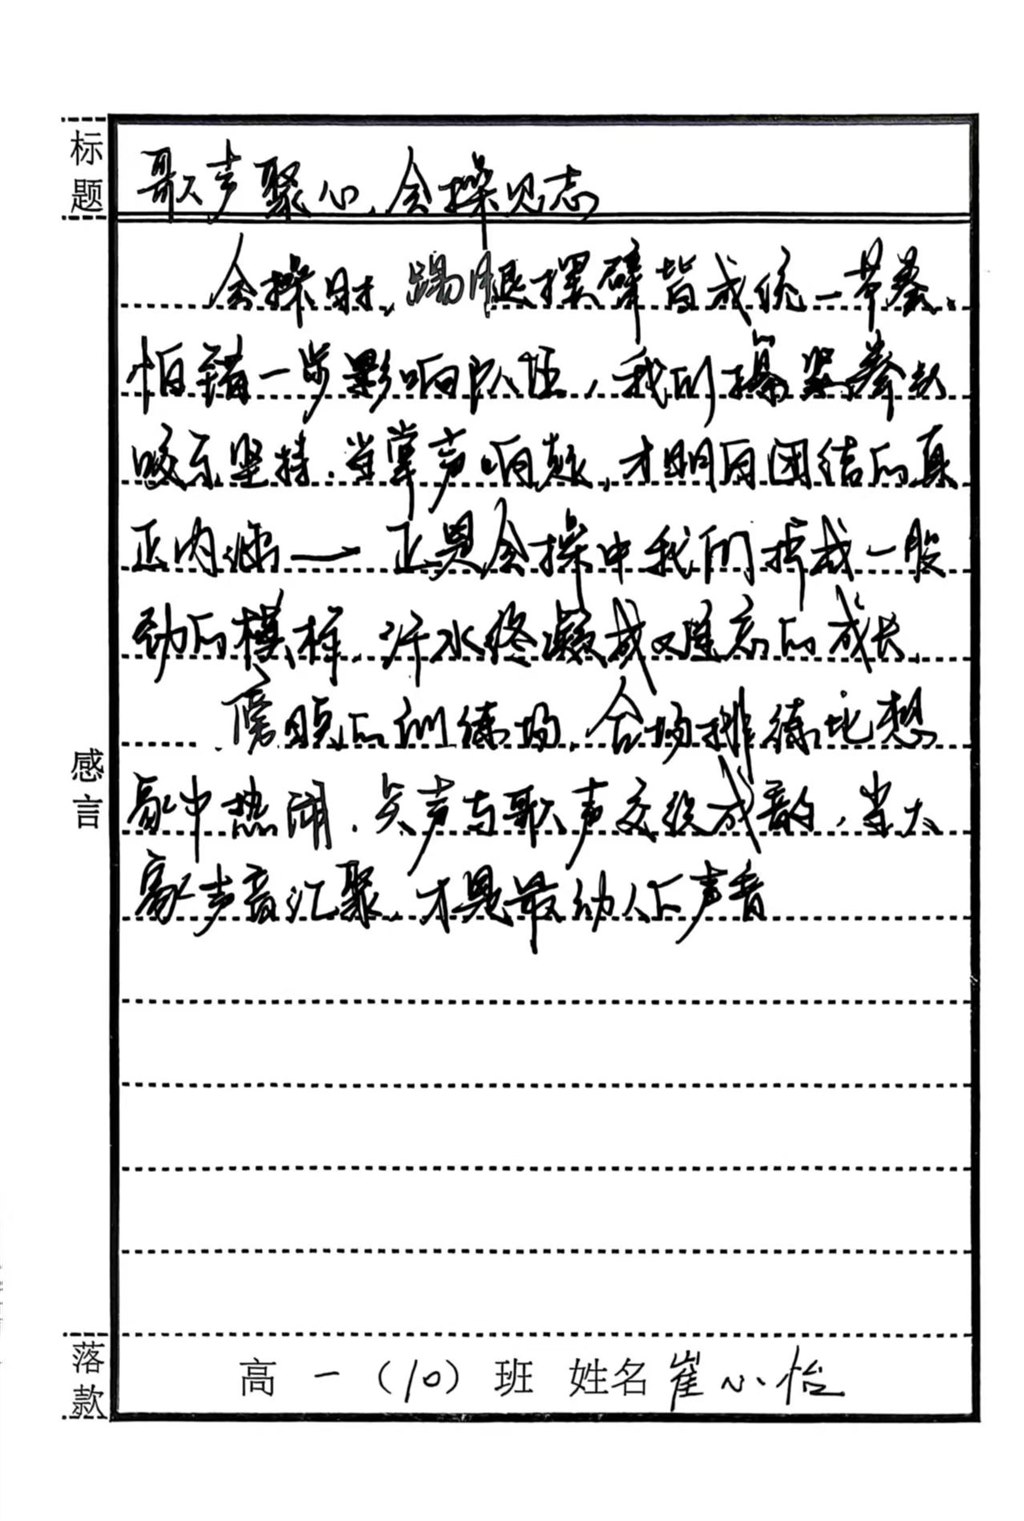 标题
歌声聚心，会操见志
会操时，踢腿摆臂皆成统一节奏，
怕错一步影响队伍，我们攥紧拳头
咬牙坚持，当掌声响起，才明白团结的真
正内涵——正是会操中我们拧成一股
劲的模样，汗水终凝成难忘的成长。
傍晚的训练场，合场排练比想
象中热闹，笑声与歌声交织成韵，当大
家声音汇聚，才是最动人的声音
感言
落款
高一（10）班 姓名 崔心怡